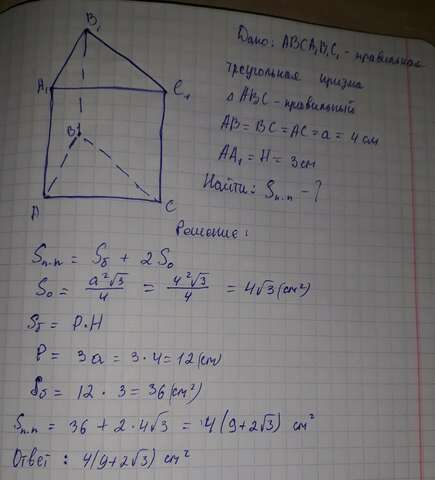 B₁
A₁
C₁
B
A
C
Дано: ABCA₁B₁C₁ - правильная
треугольная призма
Δ ABC - правильный
AB = BC = AC = a = 4 см
AA₁ = H = 3 см
Найти: Sп.п - ?
Решение:
Sп.п = Sб + 2So
So = a²√3/4 = 4²√3/4 = 4√3 (см²)
Sб = P·H
P = 3a = 3·4 = 12 (см)
Sб = 12 · 3 = 36 (см²)
Sп.п = 36 + 2·4√3 = 4(9+2√3) см²
Ответ: 4(9+2√3) см²